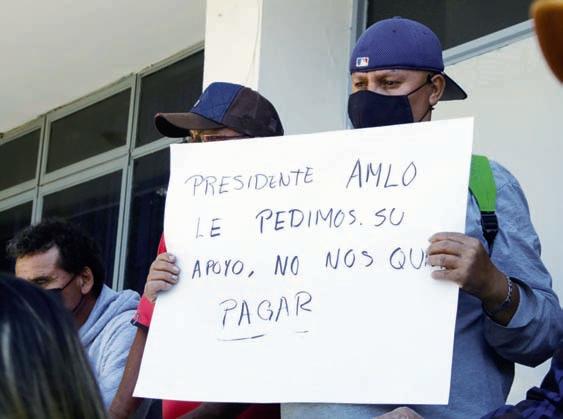 PRESIDENTE AMLO
LE PEDIMOS. SU
APOYO, NO NOS
PAGAR